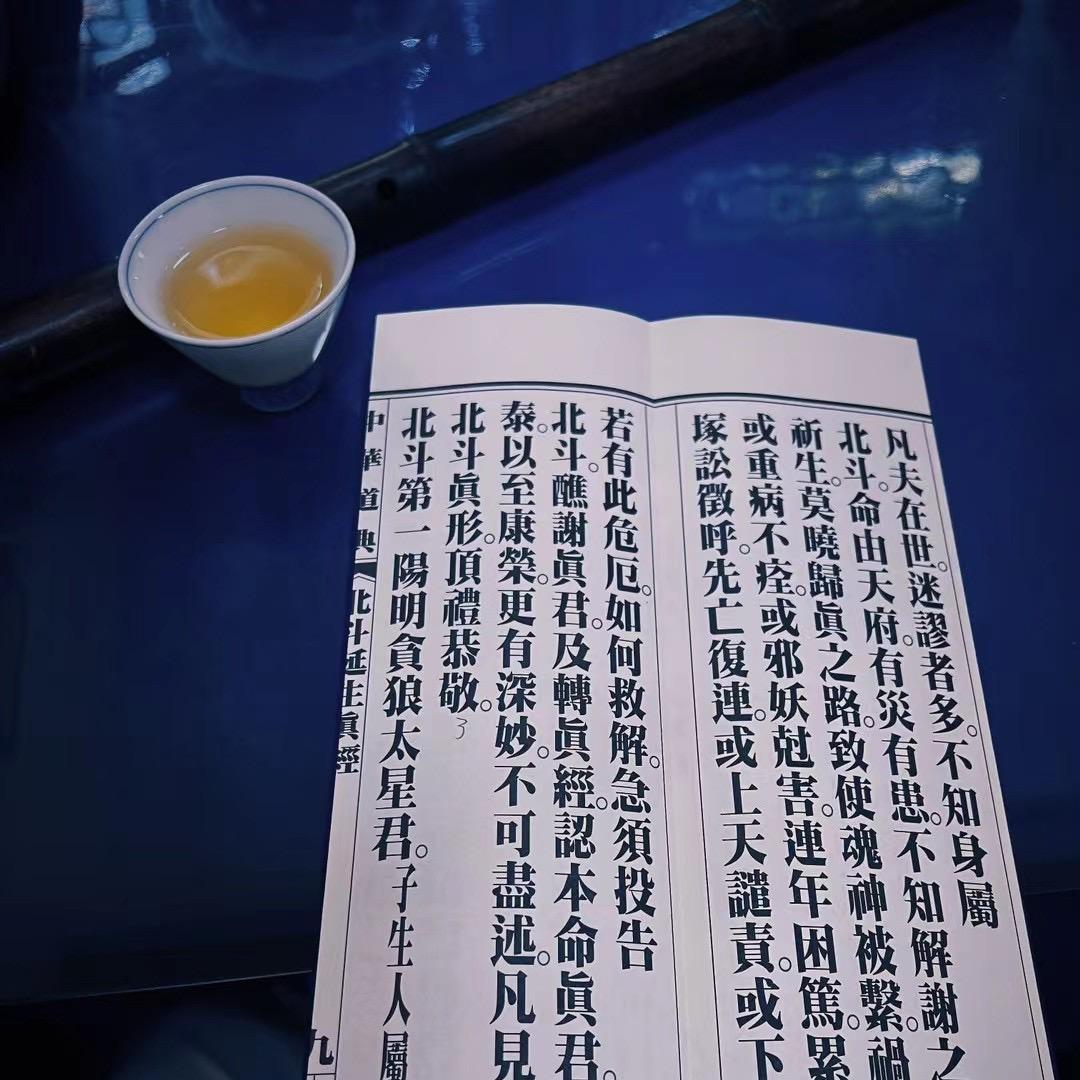 凡夫在世。迷謬者多。不知身屬
北斗。命由天府。有災有患。不知解謝之
祈生。莫曉歸眞之路。致使魂神被繫。禍
或重病不痊。或邪妖尅害。連年困篤。累
塚訟徵呼。先亡復連。或上天譴責。或下
若有此危厄。如何救解。急須投告
北斗。醮謝眞君。及轉眞經。認本命眞君。
泰。以至康榮。更有深妙。不可盡述。凡見
北斗眞形。頂禮恭敬。
3
北斗第一陽明貪狼太星君。子生人屬
中華道典
北斗延生眞經
九